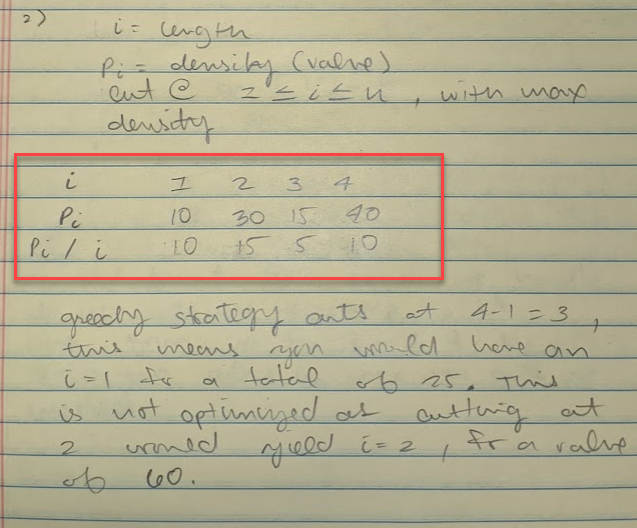 2)
i = length
Pi = density (value)
cut @ 1 ≤ i ≤ n, with max
density
i 1 2 3 4
Pi 10 30 15 40
Pi / i 10 15 5 10
greedy strategy cuts at 4-1 = 3,
this means you would have an
i=1 for a total of 25. This
is not optimized as cutting at
2 would yield i=2, for a value
of 60.